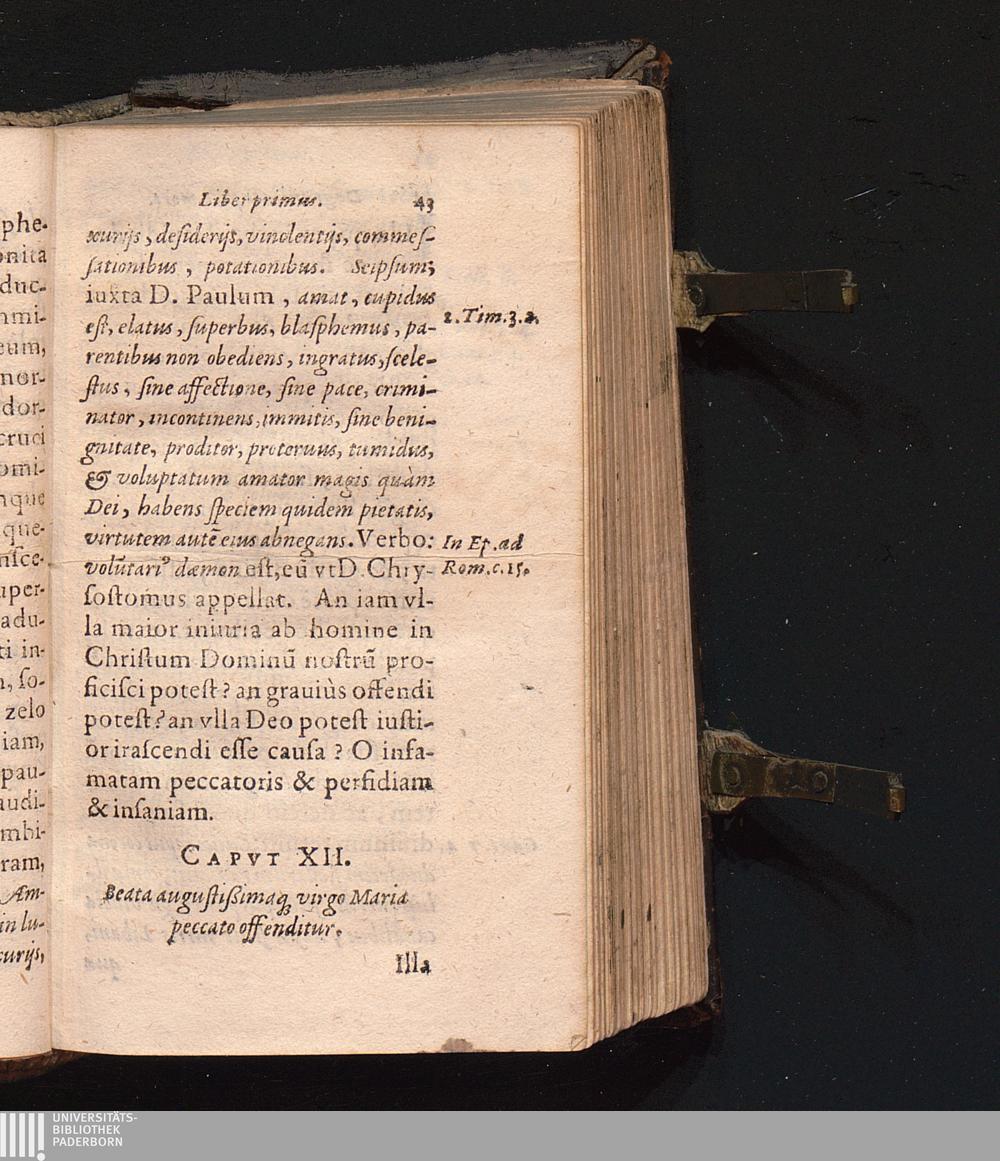 phe-
onita
duc-
mmi-
eum,
nor-
dor-
cruci
omi-
nque
que-
nisce-
uper-
adu-
ti in-
n, so-
zelo
iam,
pau-
audi-
mbi-
ram,
Æm-
in lu-
curijs,
Liber primus. 43
xurijs, desiderijs, vinolentijs, commes-
sationibus, potationibus. Seipsum,
iuxta D. Paulum, amat, cupidus
est, elatus, superbus, blasphemus, pa-
rentibus non obediens, ingratus, scele-
stus, sine affectione, sine pace, crimi-
nator, incontinens, immitis, sine beni-
gnitate, proditor, proteruus, tumidus,
& voluptatum amator magis quàm
Dei, habens speciem quidem pietatis,
virtutem autē eius abnegans. Verbo:
volūtariꝰ dæmon est, eū vt D. Chry-
sostomus appellat. An iam vl-
la maior iniuria ab homine in
Christum Dominū nostrū pro-
ficisci potest? an grauiùs offendi
potest? an vlla Deo potest iusti-
or irascendi esse causa? O infa-
matam peccatoris & perfidiam
& insaniam.
CAPVT XII.
Beata augustissimaq; virgo Maria
peccato offenditur.
Illa
2. Tim. 3. 2.
In Ep. ad
Rom. c. 15.
UNIVERSITÄTS-
BIBLIOTHEK
PADERBORN